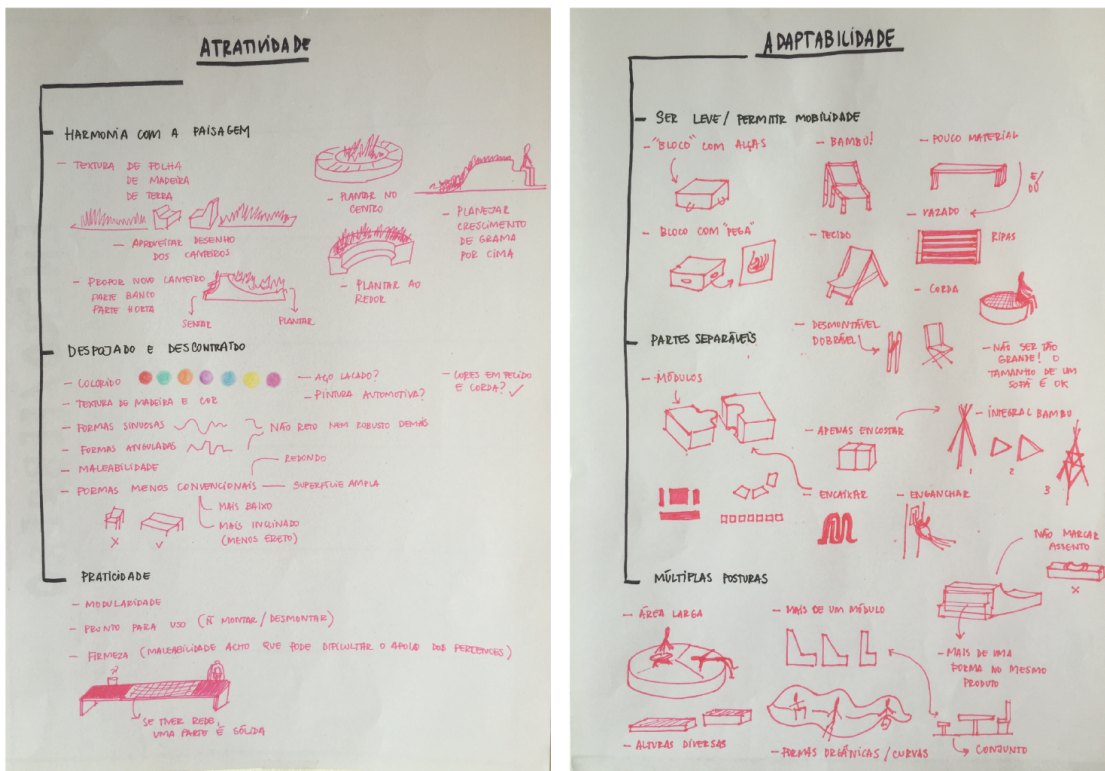 ATRATIVIDADE
HARMONIA COM A PAISAGEM
- TEXTURA DE FOLHA
DE MADEIRA
DE TERRA
- APROVEITAR DESENHO
DOS CANTEIROS
- PLANTAR NO
CENTRO
- PLANEJAR
CRESCIMENTO
DE GRAMA
POR CIMA
- PROPOR NOVO CANTEIRO
PARTE BANCO
PARTE HORTA
SENTAR
PLANTAR
- PLANTAR AO
REDOR
DESPOJADO E DESCONTRATDO
- COLORIDO
- AÇO LACADO?
- PINTURA AUTOMOTIVA?
- CORES EM TECIDO
E CORDA? ✓
- TEXTURA DE MADEIRA E COR
- FORMAS SINUOSAS
- FORMAS ANGULADAS
NÃO RETO NEM ROBUSTO DEMAIS
- MALEABILIDADE
- FORMAS MENOS CONVENCIONAIS
REDONDO
SUPERFÍCIE AMPLA
MAIS BAIXO
MAIS INCLINADO
(MENOS ERETO)
X
✓
PRATICIDADE
- MODULARIDADE
- PRONTO PARA USO (Ñ MONTAR/DESMONTAR)
- FIRMEZA (MALEABILIDADE ACHO QUE PODE DIFICULTAR O APOIO DOS PERTENCES)
SE TIVER REDE,
UMA PARTE É SÓLIDA
ADAPTABILIDADE
SER LEVE/ PERMITIR MOBILIDADE
- "BLOCO" COM ALÇAS
- BAMBU!
- POUCO MATERIAL
E/
OU
- BLOCO COM "PEGA"
- TECIDO
- VAZADO
RIPAS
- CORDA
PARTES SEPARÁVEIS
- DESMONTÁVEL
DOBRÁVEL
- NÃO SER TÃO
GRANDE! O
TAMANHO DE UM
SOFÁ É OK
- MÓDULOS
- APENAS ENCOSTAR
- INTEGRAL BAMBU
1
2
3
- ENCAIXAR
- ENGANCHAR
NÃO MARCAR
ASSENTO
X
MÚLTIPLAS POSTURAS
- ÁREA LARGA
- MAIS DE UM MÓDULO
- MAIS DE UMA
FORMA NO MESMO
PRODUTO
- ALTURAS DIVERSAS
- FORMAS ORGÂNICAS / CURVAS
CONJUNTO